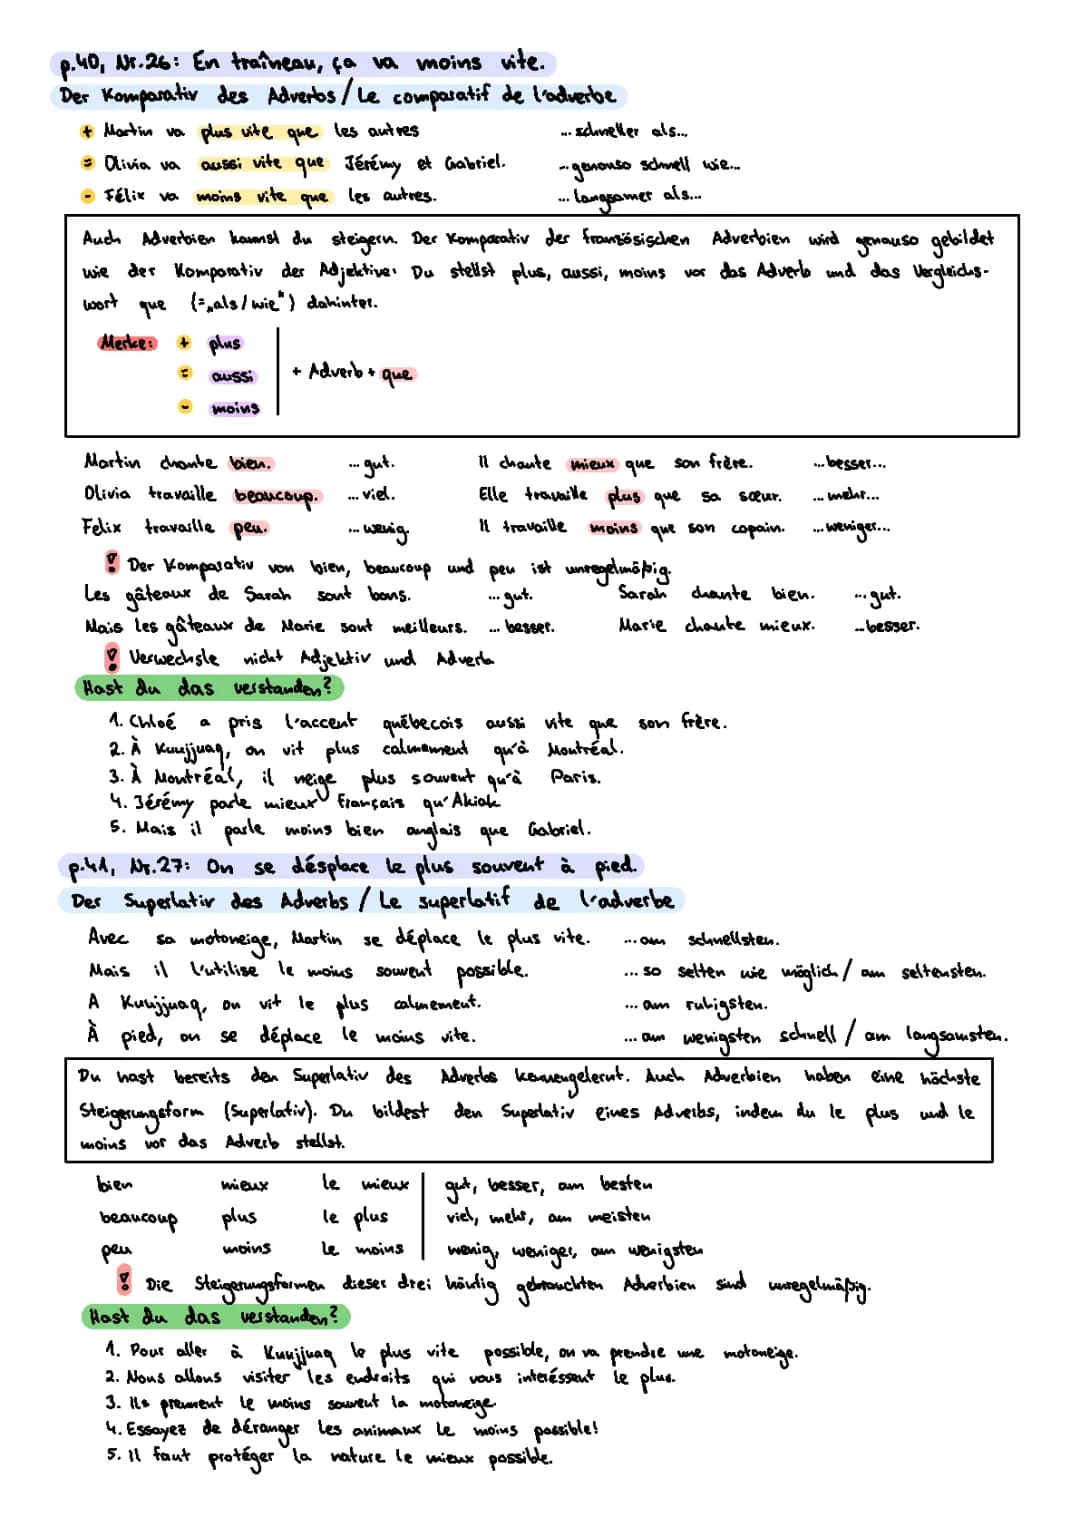 p.40, Nr.26: En traîneau, ça va moins vite.
Der Komparativ des Adverbs / Le comparatif de l'adverbe
+ Martin va plus vite que les autres ... schneller als...
= Olivia va aussi vite que Jérémy et Gabriel. ... genauso schnell wie...
- Félix va moins vite que les autres. ... langsamer als...
Auch Adverbien kannst du steigern. Der Komparativ der französischen Adverbien wird genauso gebildet
wie der Komparativ der Adjektive: Du stellst plus, aussi, moins vor das Adverb und das Vergleichs-
wort que (=„als/wie") dahinter.
Merke: + plus
= aussi + Adverb + que
- moins
Martin chante bien. ... gut. Il chante mieux que son frère. ... besser...
Olivia travaille beaucoup. ... viel. Elle travaille plus que sa sœur. ... mehr...
Felix travaille peu. ... wenig. Il travaille moins que son copain. ... weniger...
! Der Komparativ von bien, beaucoup und peu ist unregelmäßig.
Les gâteaux de Sarah sont bons. ... gut. Sarah chante bien. ... gut.
Mais les gâteaux de Marie sont meilleurs. ... besser. Marie chante mieux. ... besser.
! Verwechsle nicht Adjektiv und Adverb
Hast du das verstanden?
1. Chloé a pris l'accent québecois aussi vite que son frère.
2. À Kuujjuaq, on vit plus calmement qu'à Montréal.
3. À Montréal, il neige plus souvent qu'à Paris.
4. Jérémy parle mieux français qu'Akiak
5. Mais il parle moins bien anglais que Gabriel.
p.41, Nr.27: On se désplace le plus souvent à pied.
Der Superlativ des Adverbs / Le superlatif de l'adverbe
Avec sa motoneige, Martin se déplace le plus vite. ... am schnellsten.
Mais il l'utilise le moins souvent possible. ... so selten wie möglich / am seltensten.
A Kuujjuaq, on vit le plus calmement. ... am ruhigsten.
À pied, on se déplace le moins vite. ... am wenigsten schnell / am langsamsten.
Du hast bereits den Superlativ des Adverbs kennengelernt. Auch Adverbien haben eine höchste
Steigerungsform (Superlativ). Du bildest den Superlativ eines Adverbs, indem du le plus und le
moins vor das Adverb stellst.
bien mieux le mieux gut, besser, am besten
beaucoup plus le plus viel, mehr, am meisten
peu moins le moins wenig, weniger, am wenigsten
! Die Steigerungsformen dieser drei häufig gebrauchten Adverbien sind unregelmäßig.
Hast du das verstanden?
1. Pour aller à Kuujjuaq le plus vite possible, on va prendre une motoneige.
2. Nous allons visiter les endroits qui vous interéssent le plus.
3. Ils prennent le moins souvent la motoneige.
4. Essayez de déranger les animaux le moins possible!
5. Il faut protéger la nature le mieux possible.